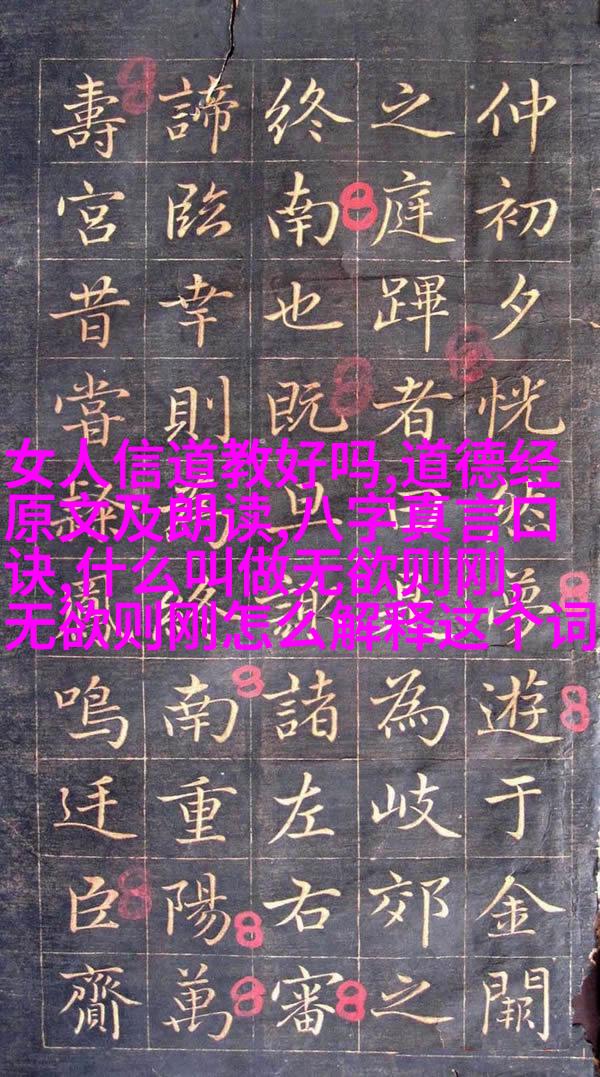 仲初夕恍夢遊于金闕
之庭蹕者為岐郊之
終南也既旦諸左右審
諦臨幸則南重陽萬
壽宮昔嘗鳴廷臣齎
女人信道教好吗,道德经
原文及朗读,八字真言口
诀,什么叫做无欲则刚,
无欲则刚怎么解释这个词